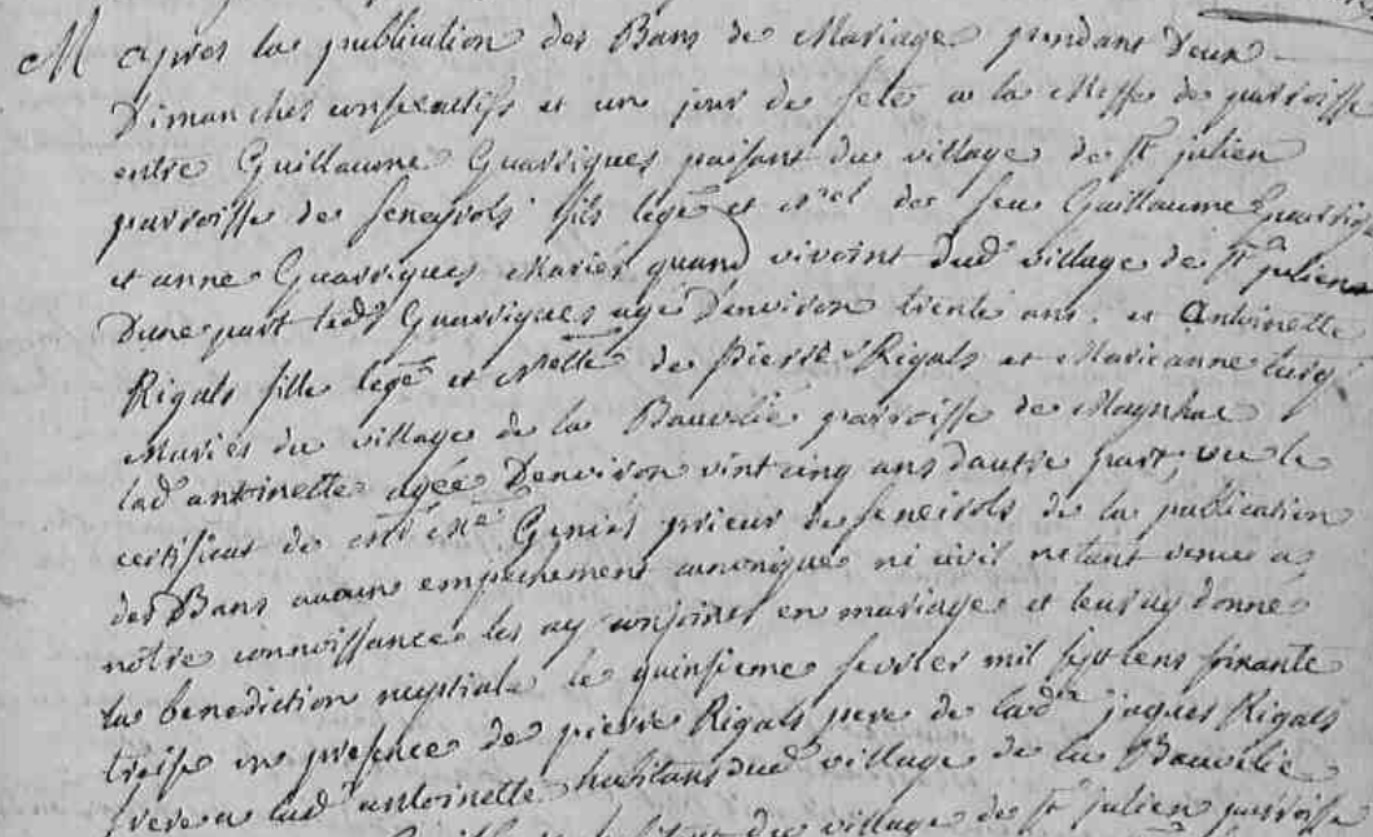 M apres la publication des Bans de Mariage pendant Deux
Dimanches consecutifs et un jour de fete a la Messe de parroisse
entre Guillaume Guarrigues paisant du village de St julien
parroisse de seneyrols fils lege et nrel de feu Guillaume Guarrigues
et anne Guarrigues Mariés quand vivoint dud village de St julien
Dune part led Guarrigues agé Denviron trente ans. et Antoinette
Rigals fille lege et Nelle de Pierre Rigals et Marieanne
Mariés du village de la Bauvelie parroisse de
lad antoinette agée Denviron vint cinq ans dautre part, vu le
certificat de Me Geniés prieur de seneirols de la publication
des Bans aucun empechement canonique ni civil netant venu a
notre connoissance les ay conjoints en mariage et leur ay donné
la benediction nuptiale le quinsieme fevrier mil sept cens soixante
treise en presence de pierre Rigals pere de lad jaques Rigals
frere a lad antoinette habitans dud village de la Bauvelie
du village de St julien parroisse